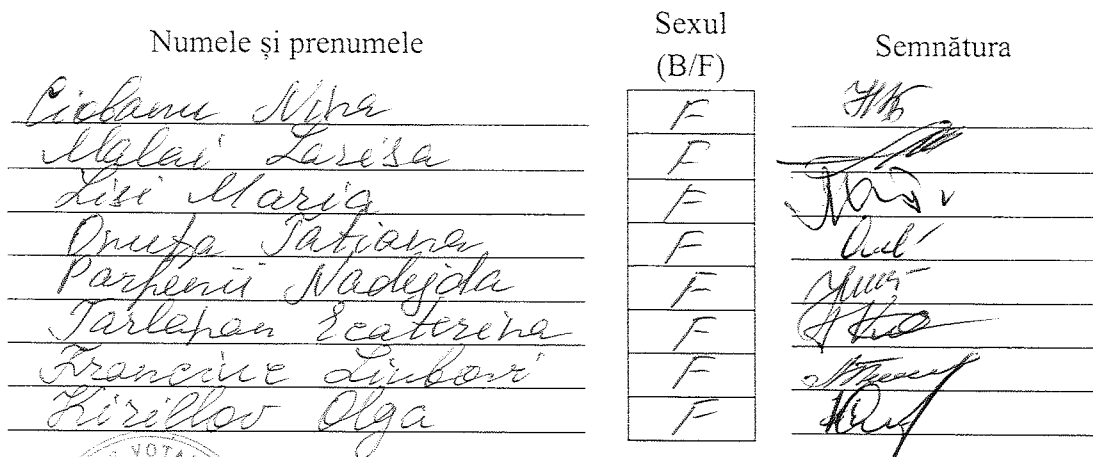 Numele și prenumele Sexul (B/F) Semnătura
Ciobanu Nina F
Malai Larisa F
Lisi Maria F
Onufa Tatiana F
Parfenii Nadejda F
Tarlapan Ecaterina F
Franciuc Liubovi F
Kirillov Olga F
VOTA